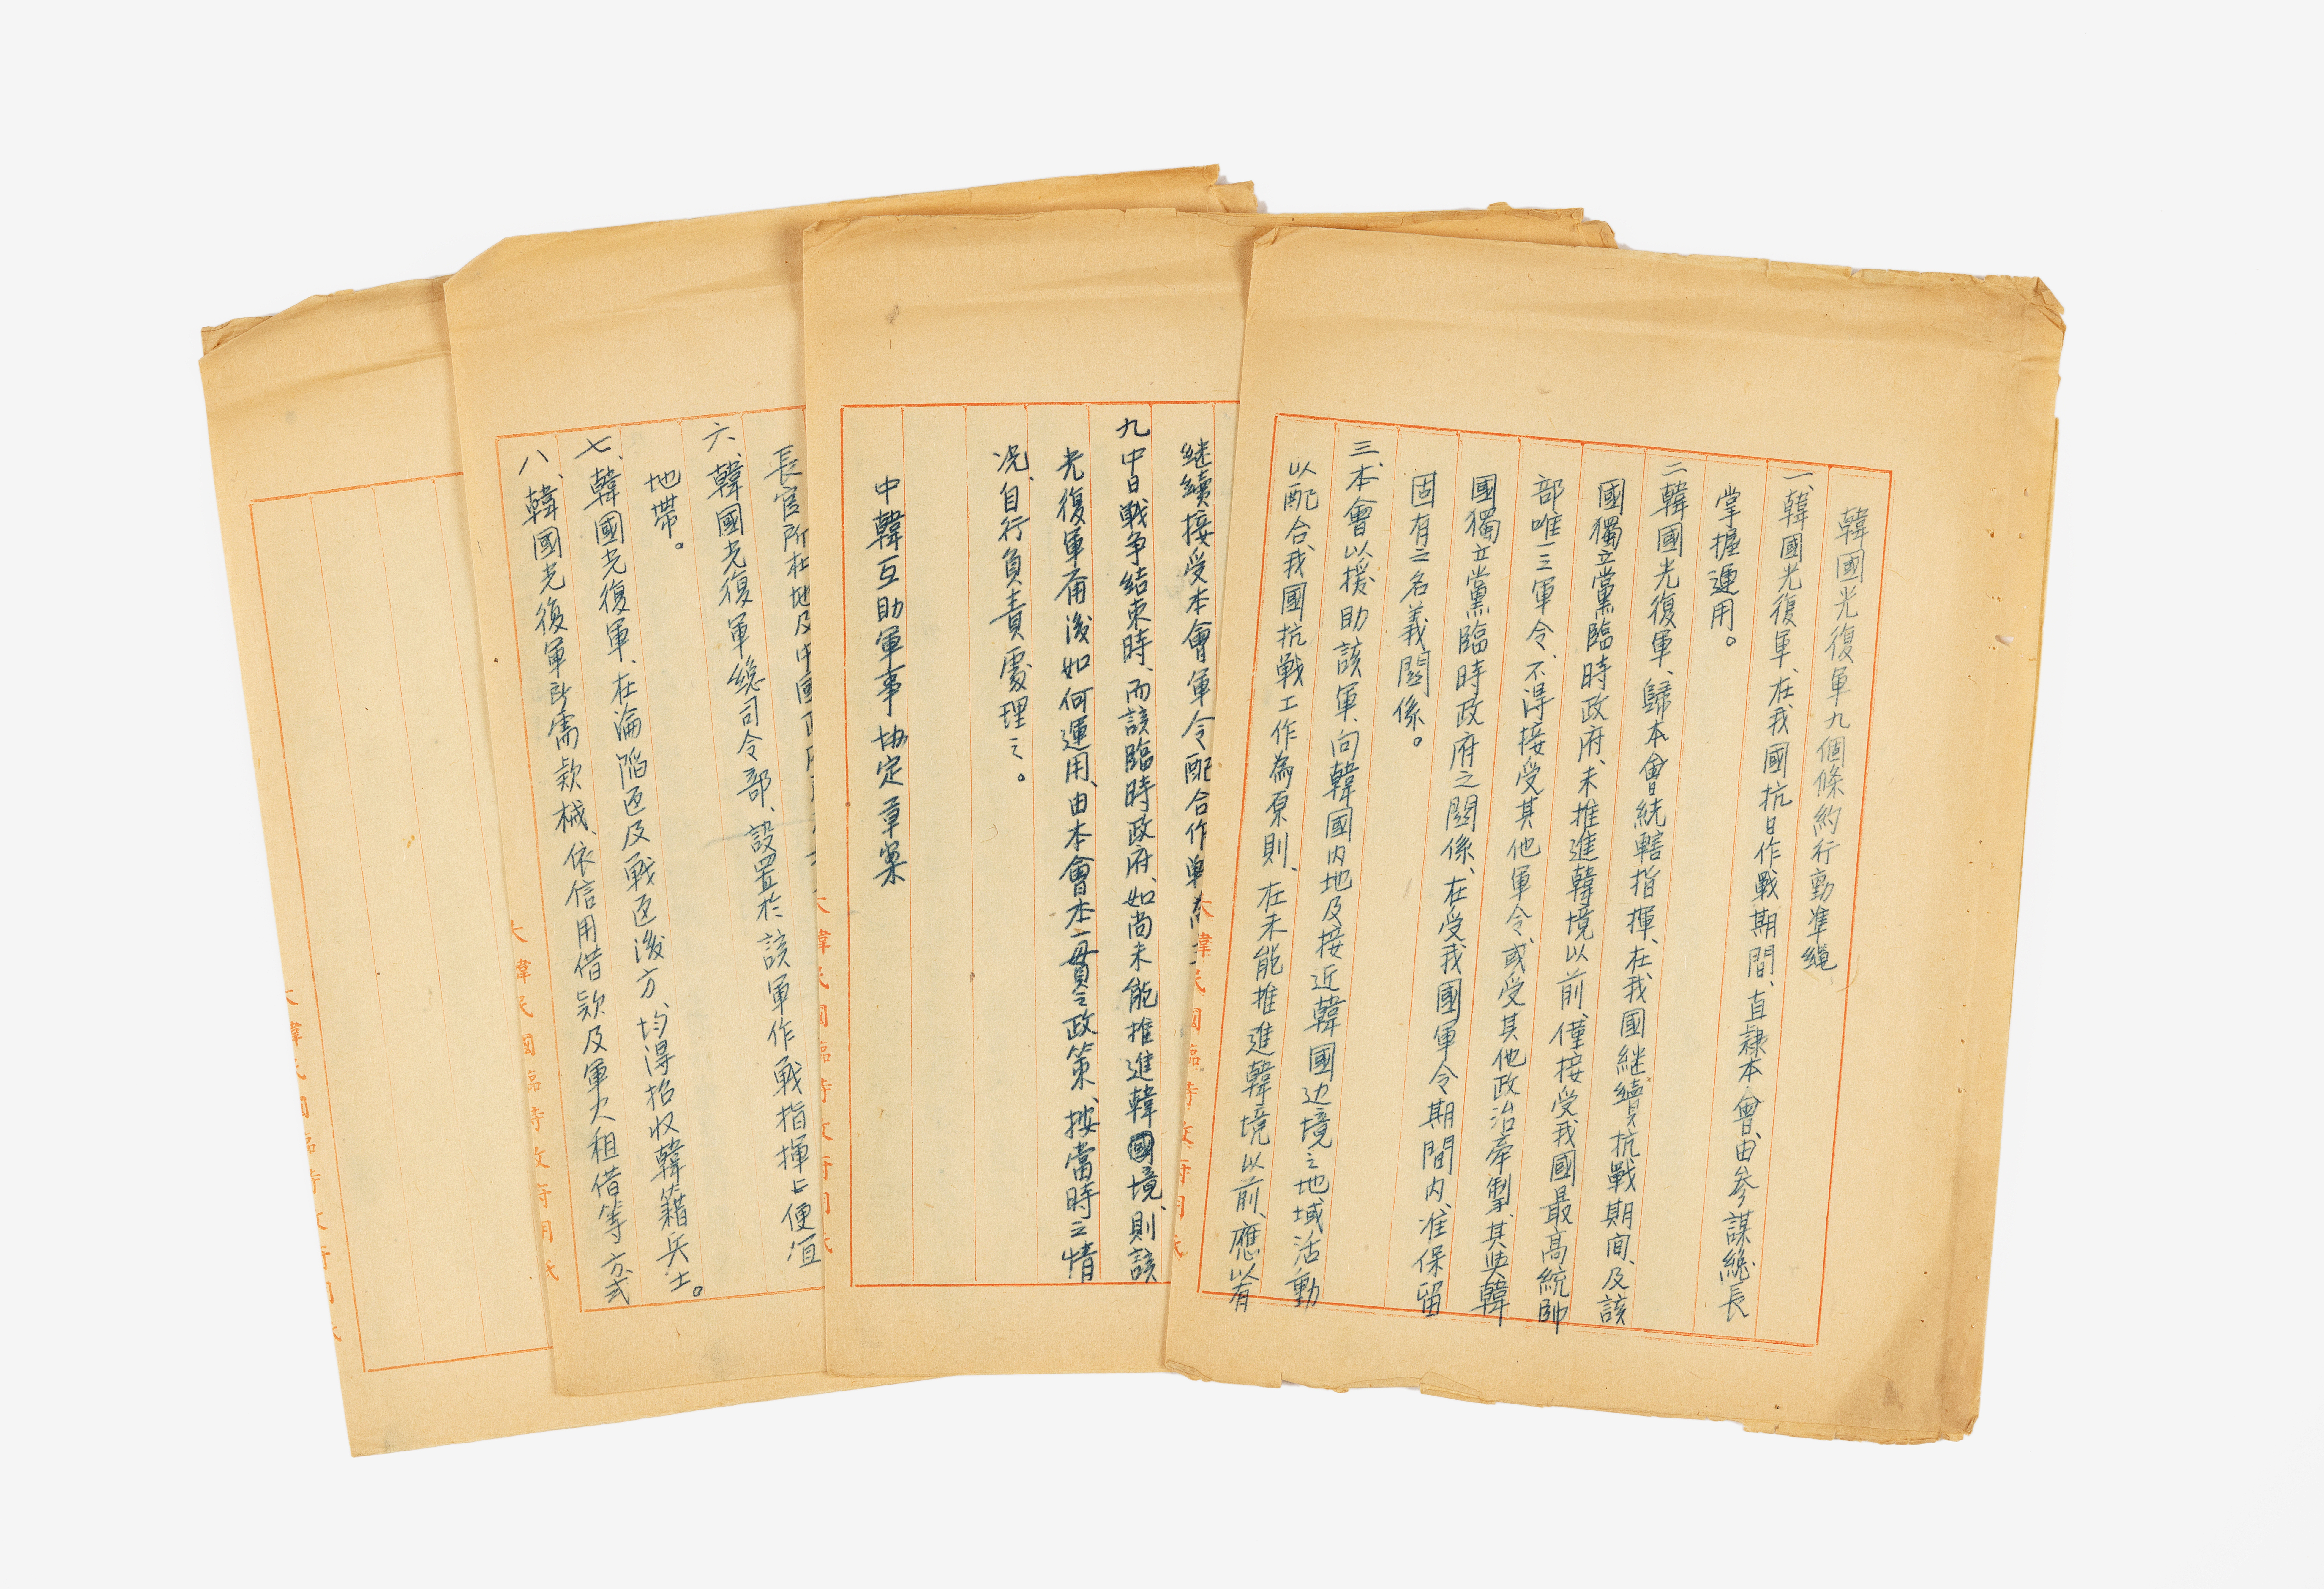 韓國光復軍九個條約行動準繩
一、韓國光復軍、在我國抗日作戰期間、直隸本會、由參謀總長
掌握運用。
二韓國光復軍、歸本會統轄指揮、在我國継續抗戰期间、及該
國獨立黨臨時政府、未推進韓境以前、僅接受我國最高統帥
部唯一三軍令、不得接受其他軍令、或受其他政治牽掣、其與韓
國獨立黨臨時政府之關係、在受我國軍令期間内、准保留
固有之名義關係。
三、本會以援助該軍、向韓國内地及接近韓國边境之地域活動
以配合我國抗戰工作為原則、在未能推進韓境以前、應以有
継續接受本會軍令配合作
九中日戦争結束時、而該臨時政府、如尚未能推進韓國境、則該
光復軍甭後如何運用、由本會本一貫之政策、按當時之情
况、自行負責處理之。
中韓互助軍事協定草案
長官所在地及中國
六、韓國光復軍総司令部、設置於該軍作戦指揮上便宜
地帶。
七、韓國光復軍、在淪陷区及戦区後方、均得招收韓籍兵士。
八、韓國光復軍所需款械、依信用借款及軍火租借等方式
大韓民國臨時政府用紙
大韓民國臨時政府用紙
大韓民國臨時政府用紙
大韓民國臨時政府用紙